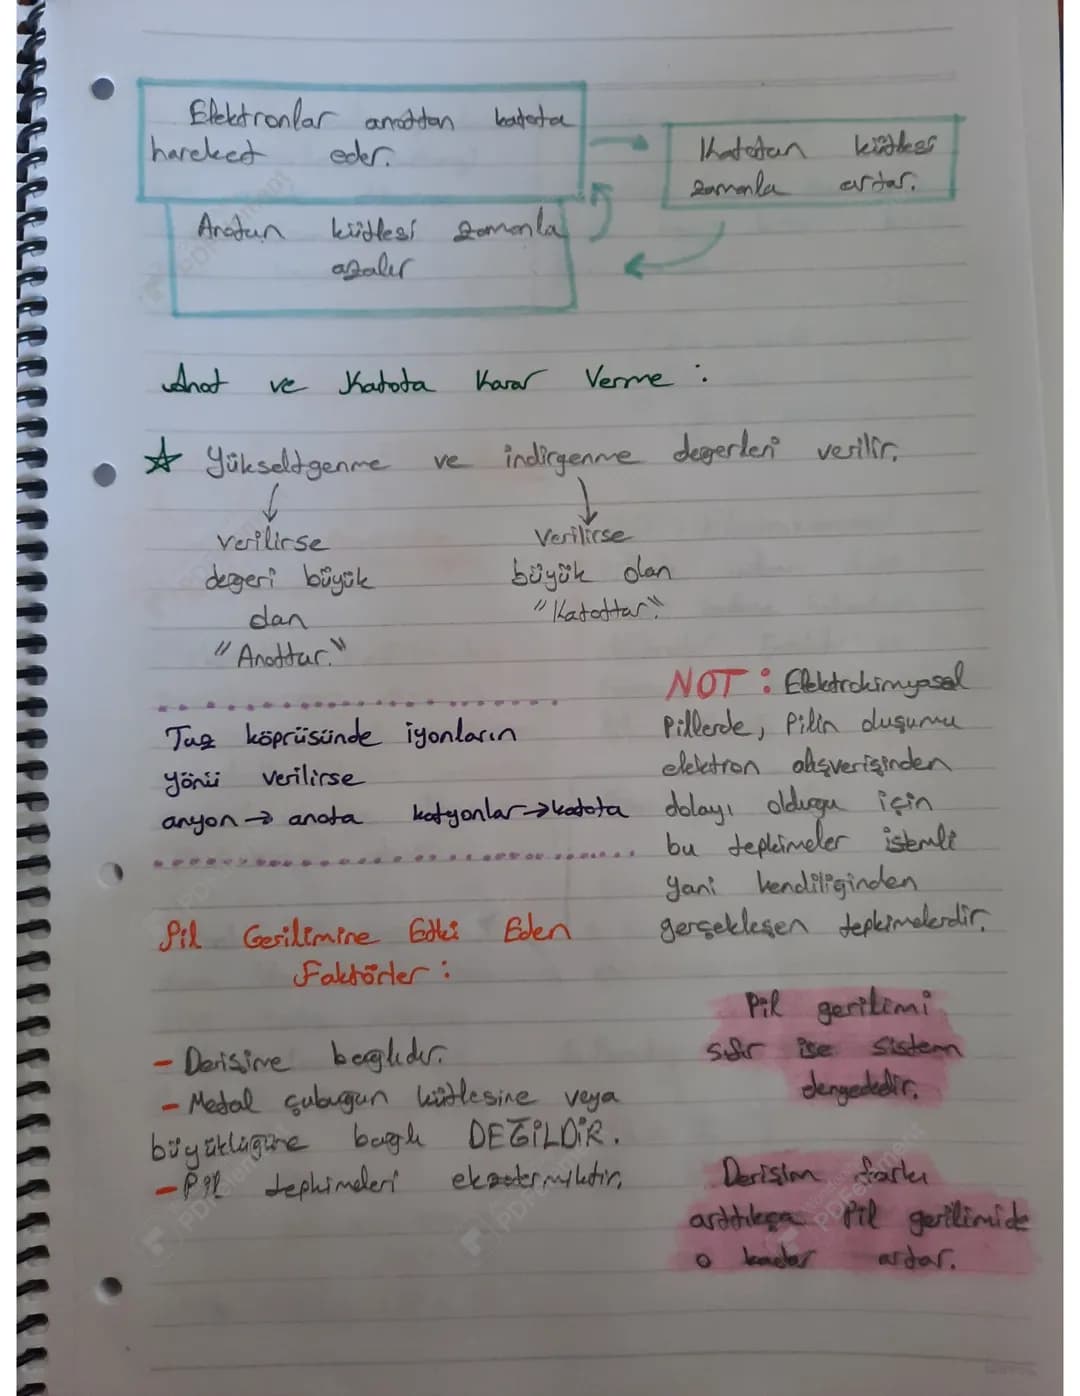 Elektronlar anottan katota
hareket eder.
Katotun kütlesi
zamanla artar.
Anotun kütlesi zamanla
azalır
Anot ve Katota Karar Verme :
☆ Yükseltgenme ve indirgenme degerleri verilir.
verilirse
degeri büyük
olan
"Anottur."
Verilirse
büyük olan
"Katottur."
Tuz köprüsünde iyonların
yönü verilirse
anyon → anota katyonlar → katota
NOT : Elektrokimyasal
Pillerde, Pilin oluşumu
elektron alışverişinden
dolayı oldugu için
bu tepkimeler istemli
yani kendiliginden
gerçekleşen tepkimelerdir.
Pil Gerilimine Etki Eden
Faktörler :
- Derişime baglıdır.
- Metal çubugun kütlesine veya
büyüklügüne baglı DEĞİLDİR.
- Pil tepkimeleri ekzotermiktir.
Pil gerilimi
sıfır ise sistem
dengededir.
Derişim farkı
arttıkça Pil gerilimide
o kadar artar.
PDFelement
PDFelement
PDFelement